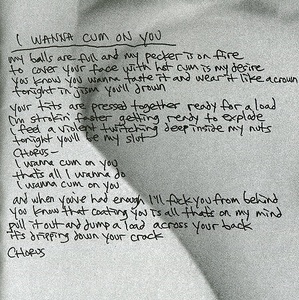 I WANNA CUM ON YOU
my balls are full and my pecker is on fire
to cover your face with hot cum is my desire
you know you wanna taste it and wear it like a crown
tonight in jism you'll drown
your tits are pressed together ready for a load
I'm strokin faster getting ready to explode
I feel a violent twitching deep inside my nuts
tonight you'll be my slut
CHORUS-
I wanna cum on you
that's all I wanna do
I wanna cum on you
and when you've had enough I'll fuck you from behind
you know that coating you is all thats on my mind
pull it out and dump a load across your back
it's dripping down your crack
CHORUS